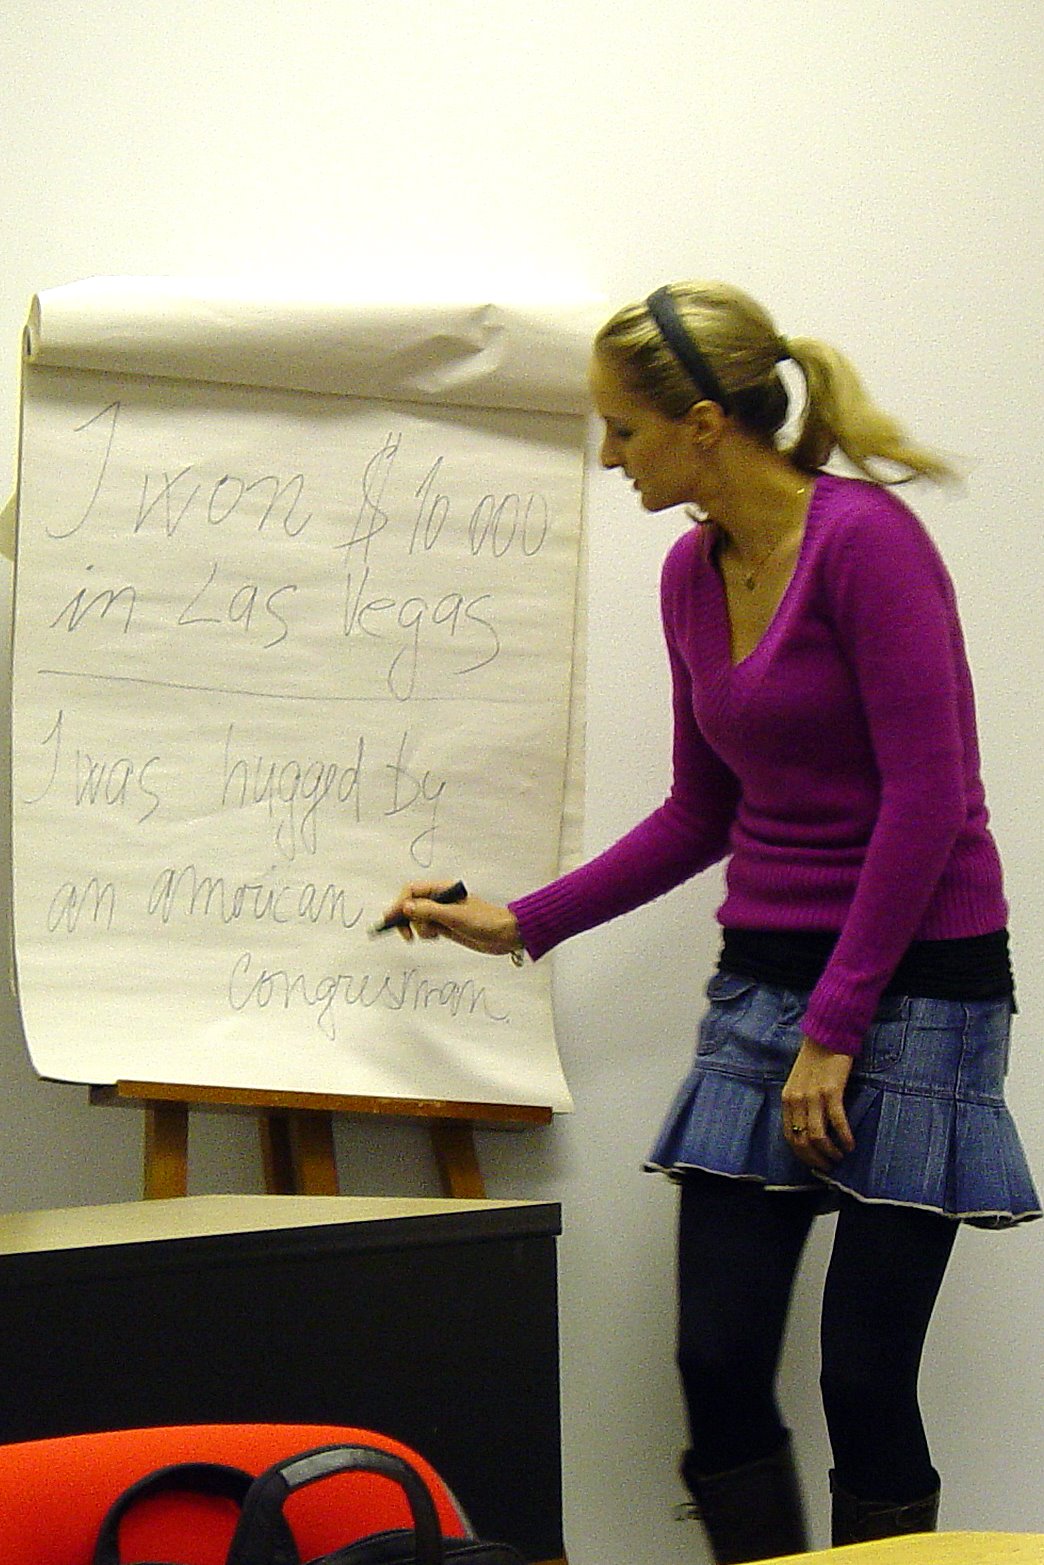 I won $10 000
in Las Vegas
I was hugged by
an american
congresman